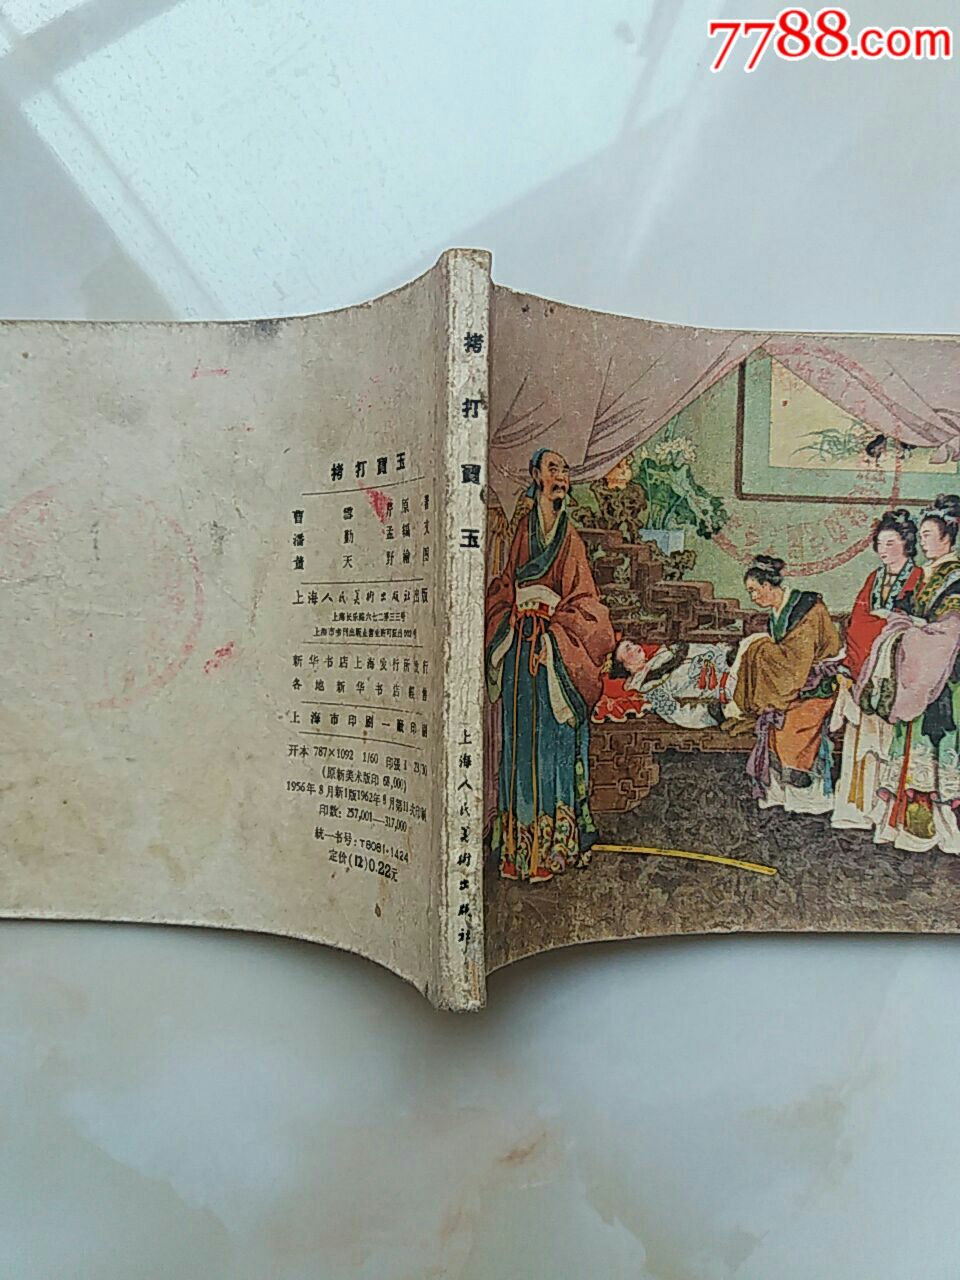 7788.com
拷打寶玉
曹雪芹原著
潘勤孟編文
董天野繪图
上海人民美術出版社出版
上海长乐路六七二弄三三号
上海市书刊出版业营业許可証出002号
新华书店上海发行所发行
各地新华书店經售
上海市印刷一厰印刷
开本 787×1092 1/60 印張 1 23/30
(原新美术版印 68,000)
1956年8月新1版 1962年8月第11次印刷
印数: 257,001—317,000
統一书号: T8081·1424
定价(12) 0.22元
拷打寶玉
上海人民美術出版社